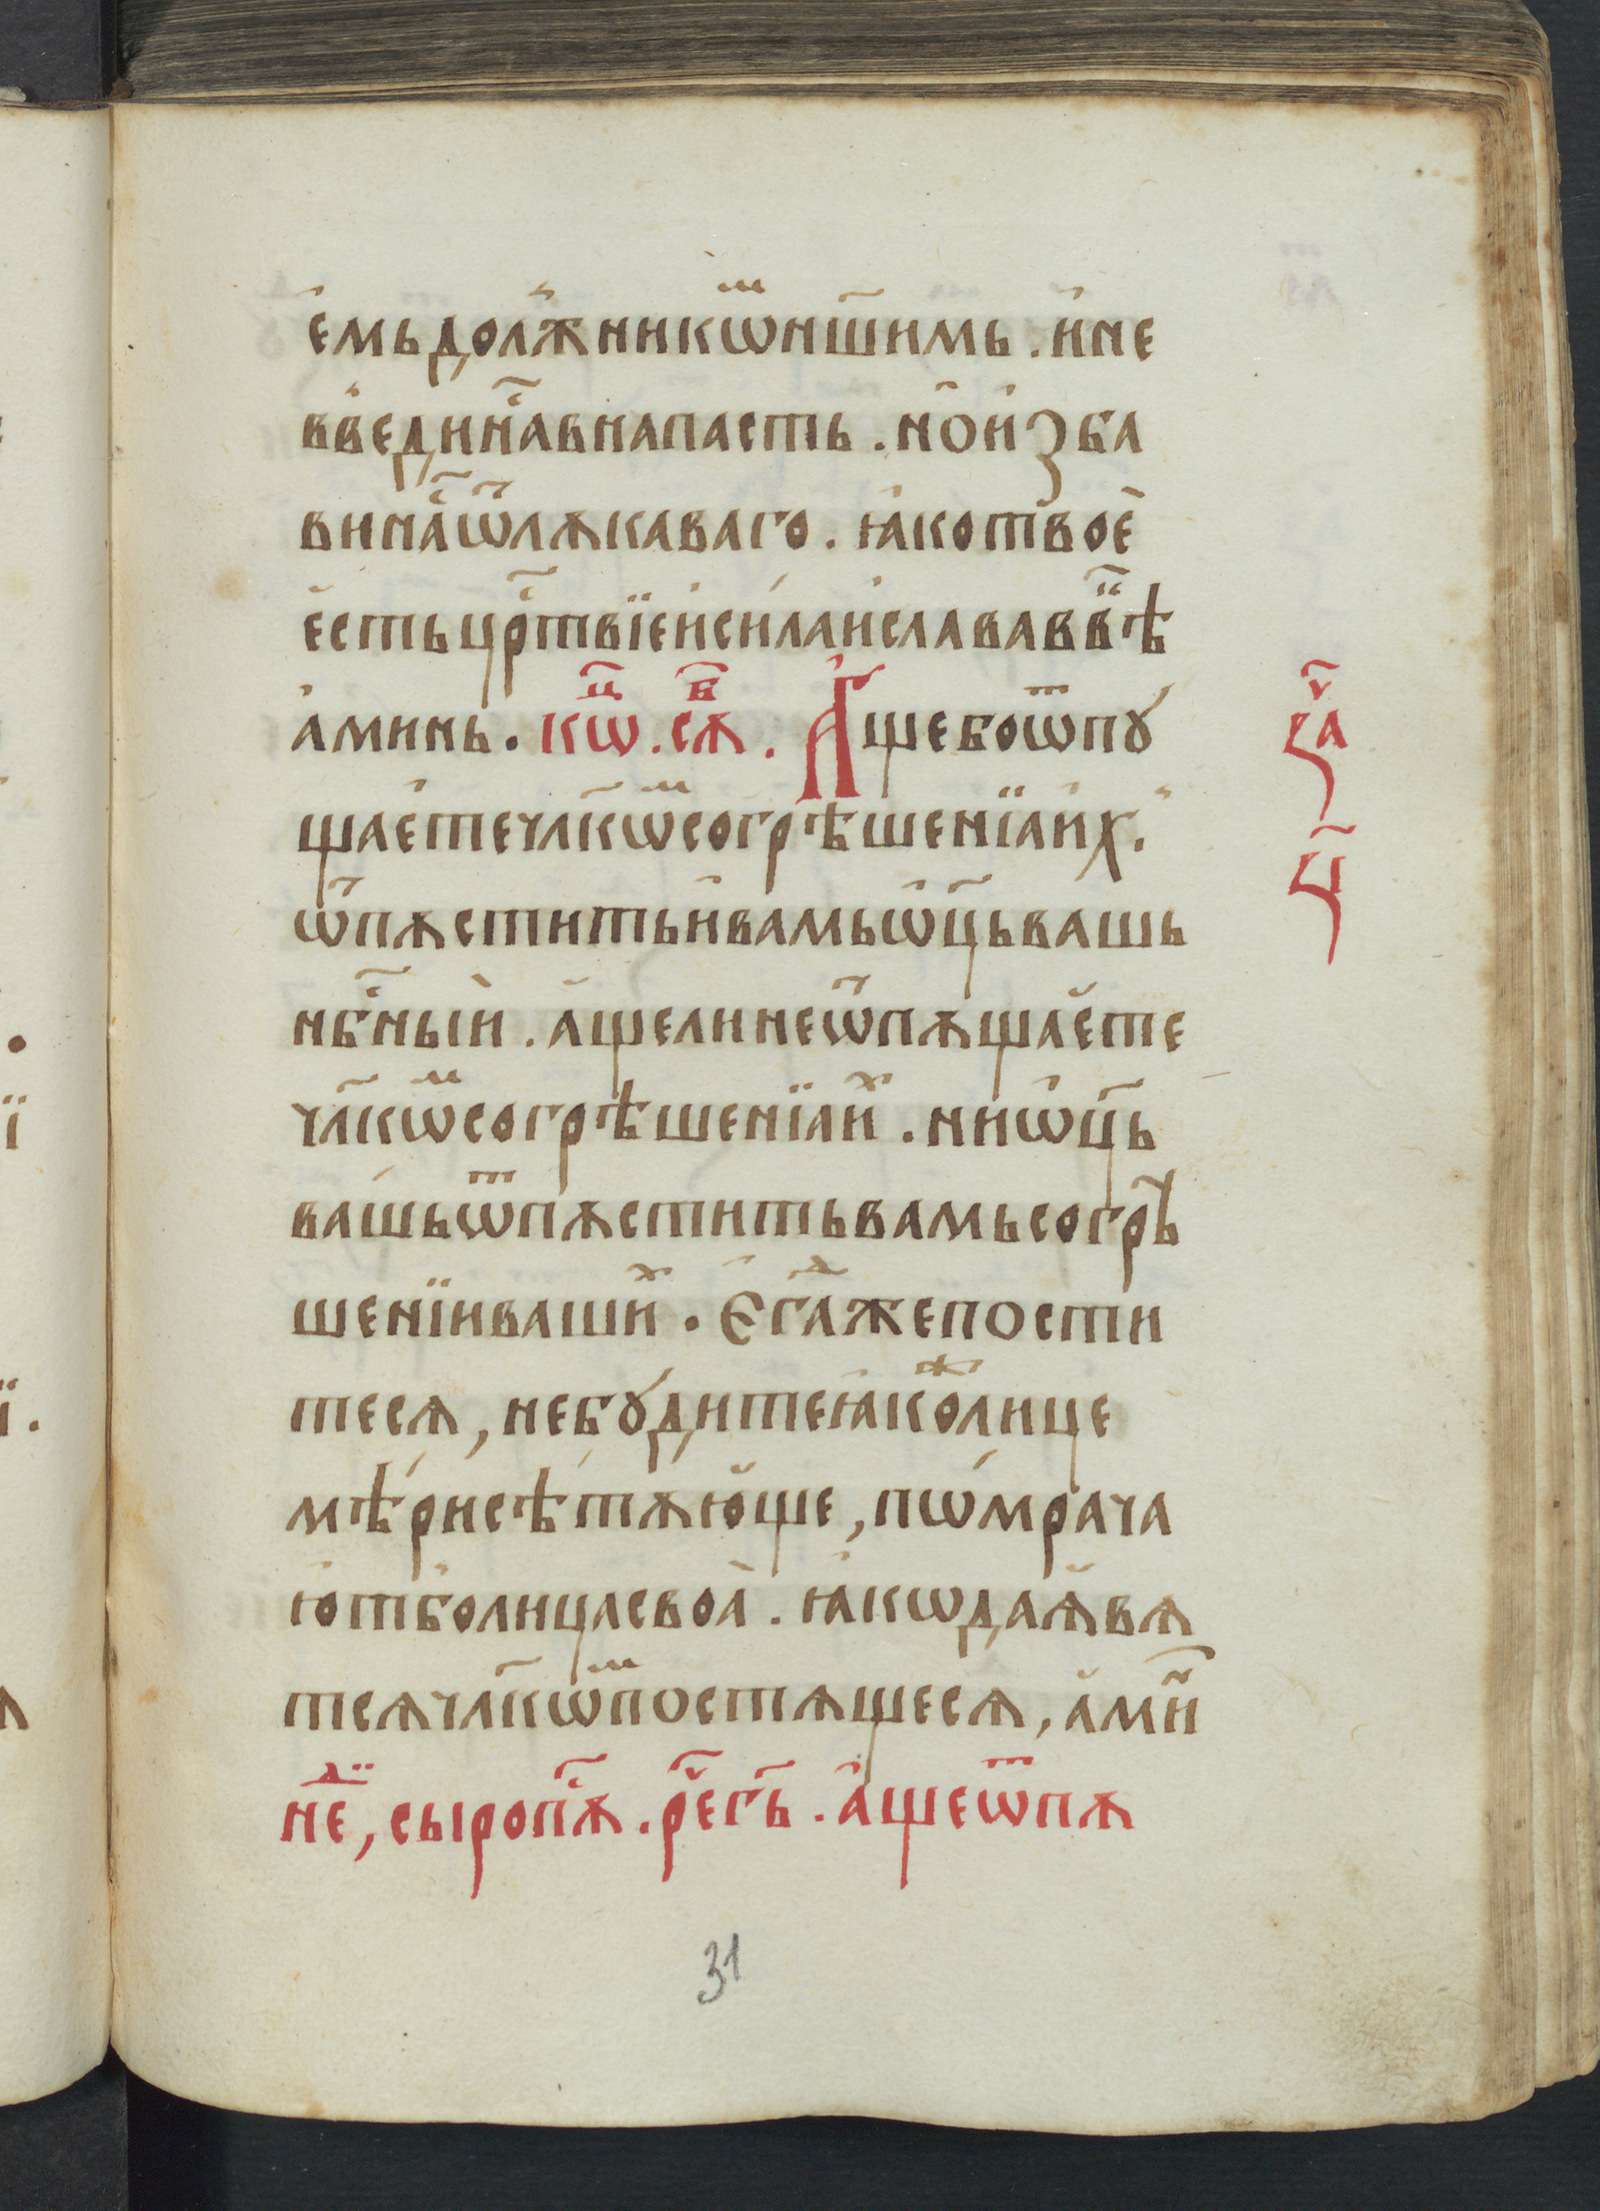 е҆мь дол̾жникѡⷨ н҃шимь . и҆ не
в̾веди на҇ в напасть . но и҆зба
ви на҇ ѿ лѫкаваго . ꙗ҆ко твоѐ
е҆сть цр҇твїе и҆ си́ла и҆ слава в вⷦ҇ѣ
а҆минь . кѡⷰ . сѫⷠ . А҆ще бо ѿпꙋ
щае҆те чл҃кѡⷨ согрѣшенїа и҆х .
ѿпѫстить и҆ вамь ѡ҆ц҃ь вашь
нб҇ный . а҆ще ли не ѿпѫщае҆те
чл҃кѡⷨ согрѣшенїа иⷯ . ни ѡ҆ц҃ь
ва́шь ѿпѫстить вамь согрѣ
шенїи вашиⷯ . Є҆гⷣа же пости
тесѧ , не бꙋ́дите ꙗ҆коⷤ лице
мѣ́ри сѣ́тѫю҆ще , пѡ́мрача
ю҆т бо лица своа̀ . ꙗ҆кѡ да ꙗ҆вѧ
тсѧ чл҃кѡⷨ постѧщесѧ , а҆ми҃н
неⷣ , сыропꙋ҇ . рⷱ҇е гс҃ь . а҆ще ѿпѫ
зⷱ҇а
ц҃
31